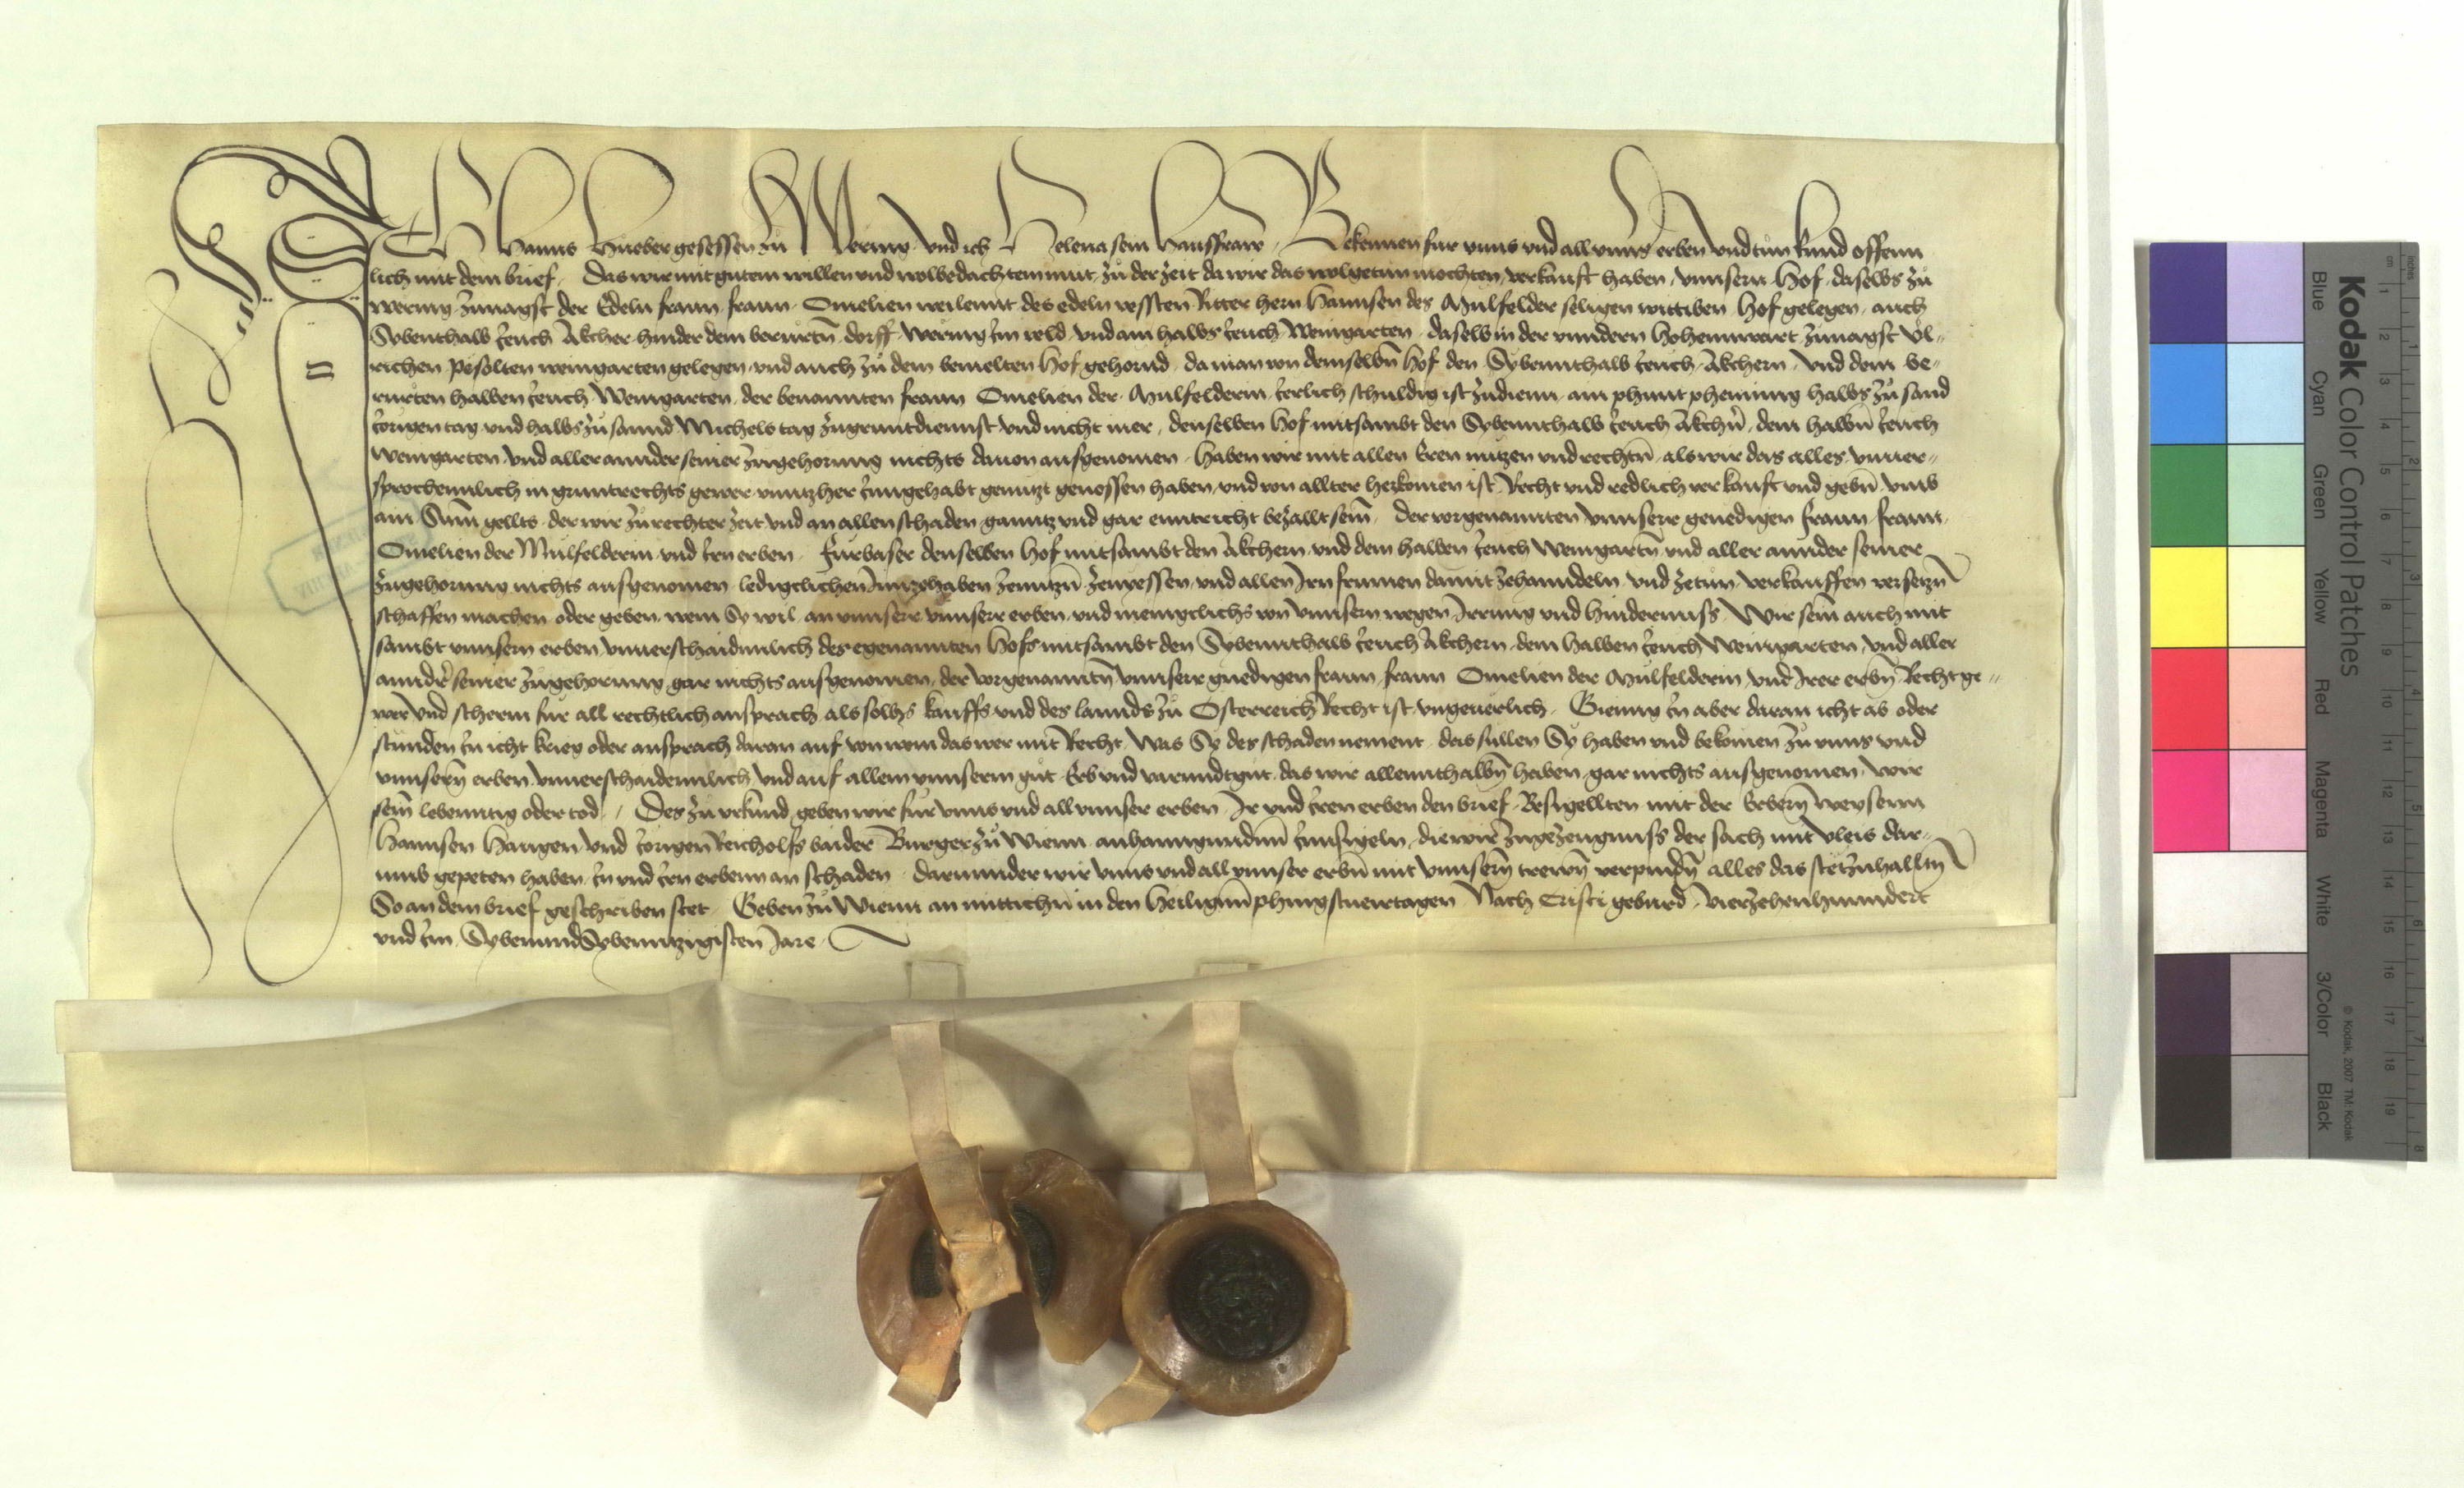 ICH Hanns Hueber gesessen zu Wering vnd ich Helena sein hausfraw Bekennen fur vnns vnd all vnns erben vnd tun kund offenn
lich mit dem brief Das wir mit gutem willen vnd wolbedachtem mut zu der zeit da wir das wolgetun mochten verkauft haben vnnsern hof daselbs zu
wering zunagst der Edeln frawn frawn Omelien weilennt des edeln vessten Ritter hern hannsen des Mulfelder seligen wittiben hof gelegen auch
Sybenthalb Jeuch Akcher hinder dem berurtn dorff wering im veld vnd ain halbs Jeuch Weingarten daselbs in der vnndern hohennwart zunagst Vl-
richen pesolten weingarten gelegen vnd auch zu dem bemelten hof gehornd da man von demselbn hof den Sybennthalb Jeuch Akchern vnd dem be-
rurten halben Jeuch Weingarten der benannten frawn Omelien der Mulfelderin Jerlich schuldig ist zudienn ain phunt phenning halbs zu sand
Jorigen tag vnd halbs zu sannd Michels tag zu grunntdiennst vnd nicht mer denselben hof mitsambt den Sybennthalb Jeuch Akchn dem halbn Jeuch
weingarten vnd aller annder seiner zugehorung nichts dauon ausgenomen haben wir mit allen Eren nutzen vnd rechtn als wir das alles vnuer-
sprochennlich in gruntrechts gewer vnntzher Inngehabt genutzt genossen haben vnd von allter herkomen ist Recht vnd redlich verkauft vnd gebn vmb
ain Sum gellts der wir zu rechter zeit vnd an allen schaden ganntz vnd gar enntricht bezallt sein Der vorgenannten vnnserr genedigen frawn frawn
Omelien der Mulfelderin vnd Irn erben Furbaser denselben hof mitsambt den Akchern vnd dem halben Jeuch weingartn vnd aller annder seiner
zugehorung nichts ausgenomen ledigclichen Innzehaben zenutzn zenyessen vnd allen Irn frumen damit zehanndeln vnd zetun verkauffen versetzn
schaffen machen oder geben wem Sy wil an vnnserr vnnserr erben vnd menigclichs von vnnsern wegen Irrung vnd hindernuss Wir sein auch mit
sambt vnnsern erben vnuerschaidennlich des egenannten hofs mitsambt den Sybennthalb Jeuch Akchern dem halben Jeuch Weingarten vnd aller
annder seiner zugehorung gar nichts ausgenomen der vorgenanntn vnnserr gnedigen frawn frawn Omelien der Mulfelderin vnd Irer erbn Recht ge-
wer vnd scherm fur all rechtlich ansprach als solhs kauffs vnd des lannds zu Osterreich Recht ist vngeuerlich Gienng In aber daran icht ab oder
stunden In icht krieg oder ansprach daran auf von wem das wer mit Recht Was Sy des schaden nement das sullen Sy haben vnd bekomen zu vnns vnd
vnnsern erben vnuerschaidennlich vnd auf allem vnnserm gut Erb vnd varundtgut das wir allennthalbn haben gar nichts ausgenomen wir
sein lebenntig oder tod Des zu vrkund geben wir fur vnns vnd all vnnser erben Ir vnd Iren erben den brief Besigellten mit der Erbern weysenn
Hannsen Haugen vnd Jorigen Reicholfs baider Burger zu Wienn anhanngunden Innsigeln die wir zugezeugnuss der sach mit vleis dar-
umb gepeten haben In vnd Irn erbenn an schaden darunnder wir vnns vnd all vnnser erbn mit vnnsern trewn verpindn alles das stet zuhalltn
So an dem brief geschriben stet Geben zu Wienn an mittichn in den heiligen phingstueirtagen Nach Cristi geburd Vierzehenhunndert
vnd im Sybenundsybenntzigisten Jare
Kodak Color Control Patches
Blue Cyan Green Yellow Red Magenta White 3/Color Black
© Kodak, 2007 TM: Kodak